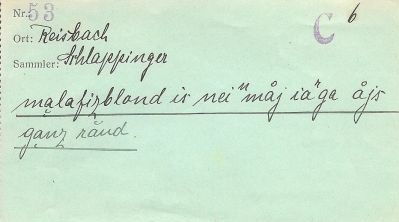 Nr. 53
C 6
Ort: Reisbach
Sammler: Schlappinger
malafizblond is nei "måj iä"ga åjs
ganz ränd.